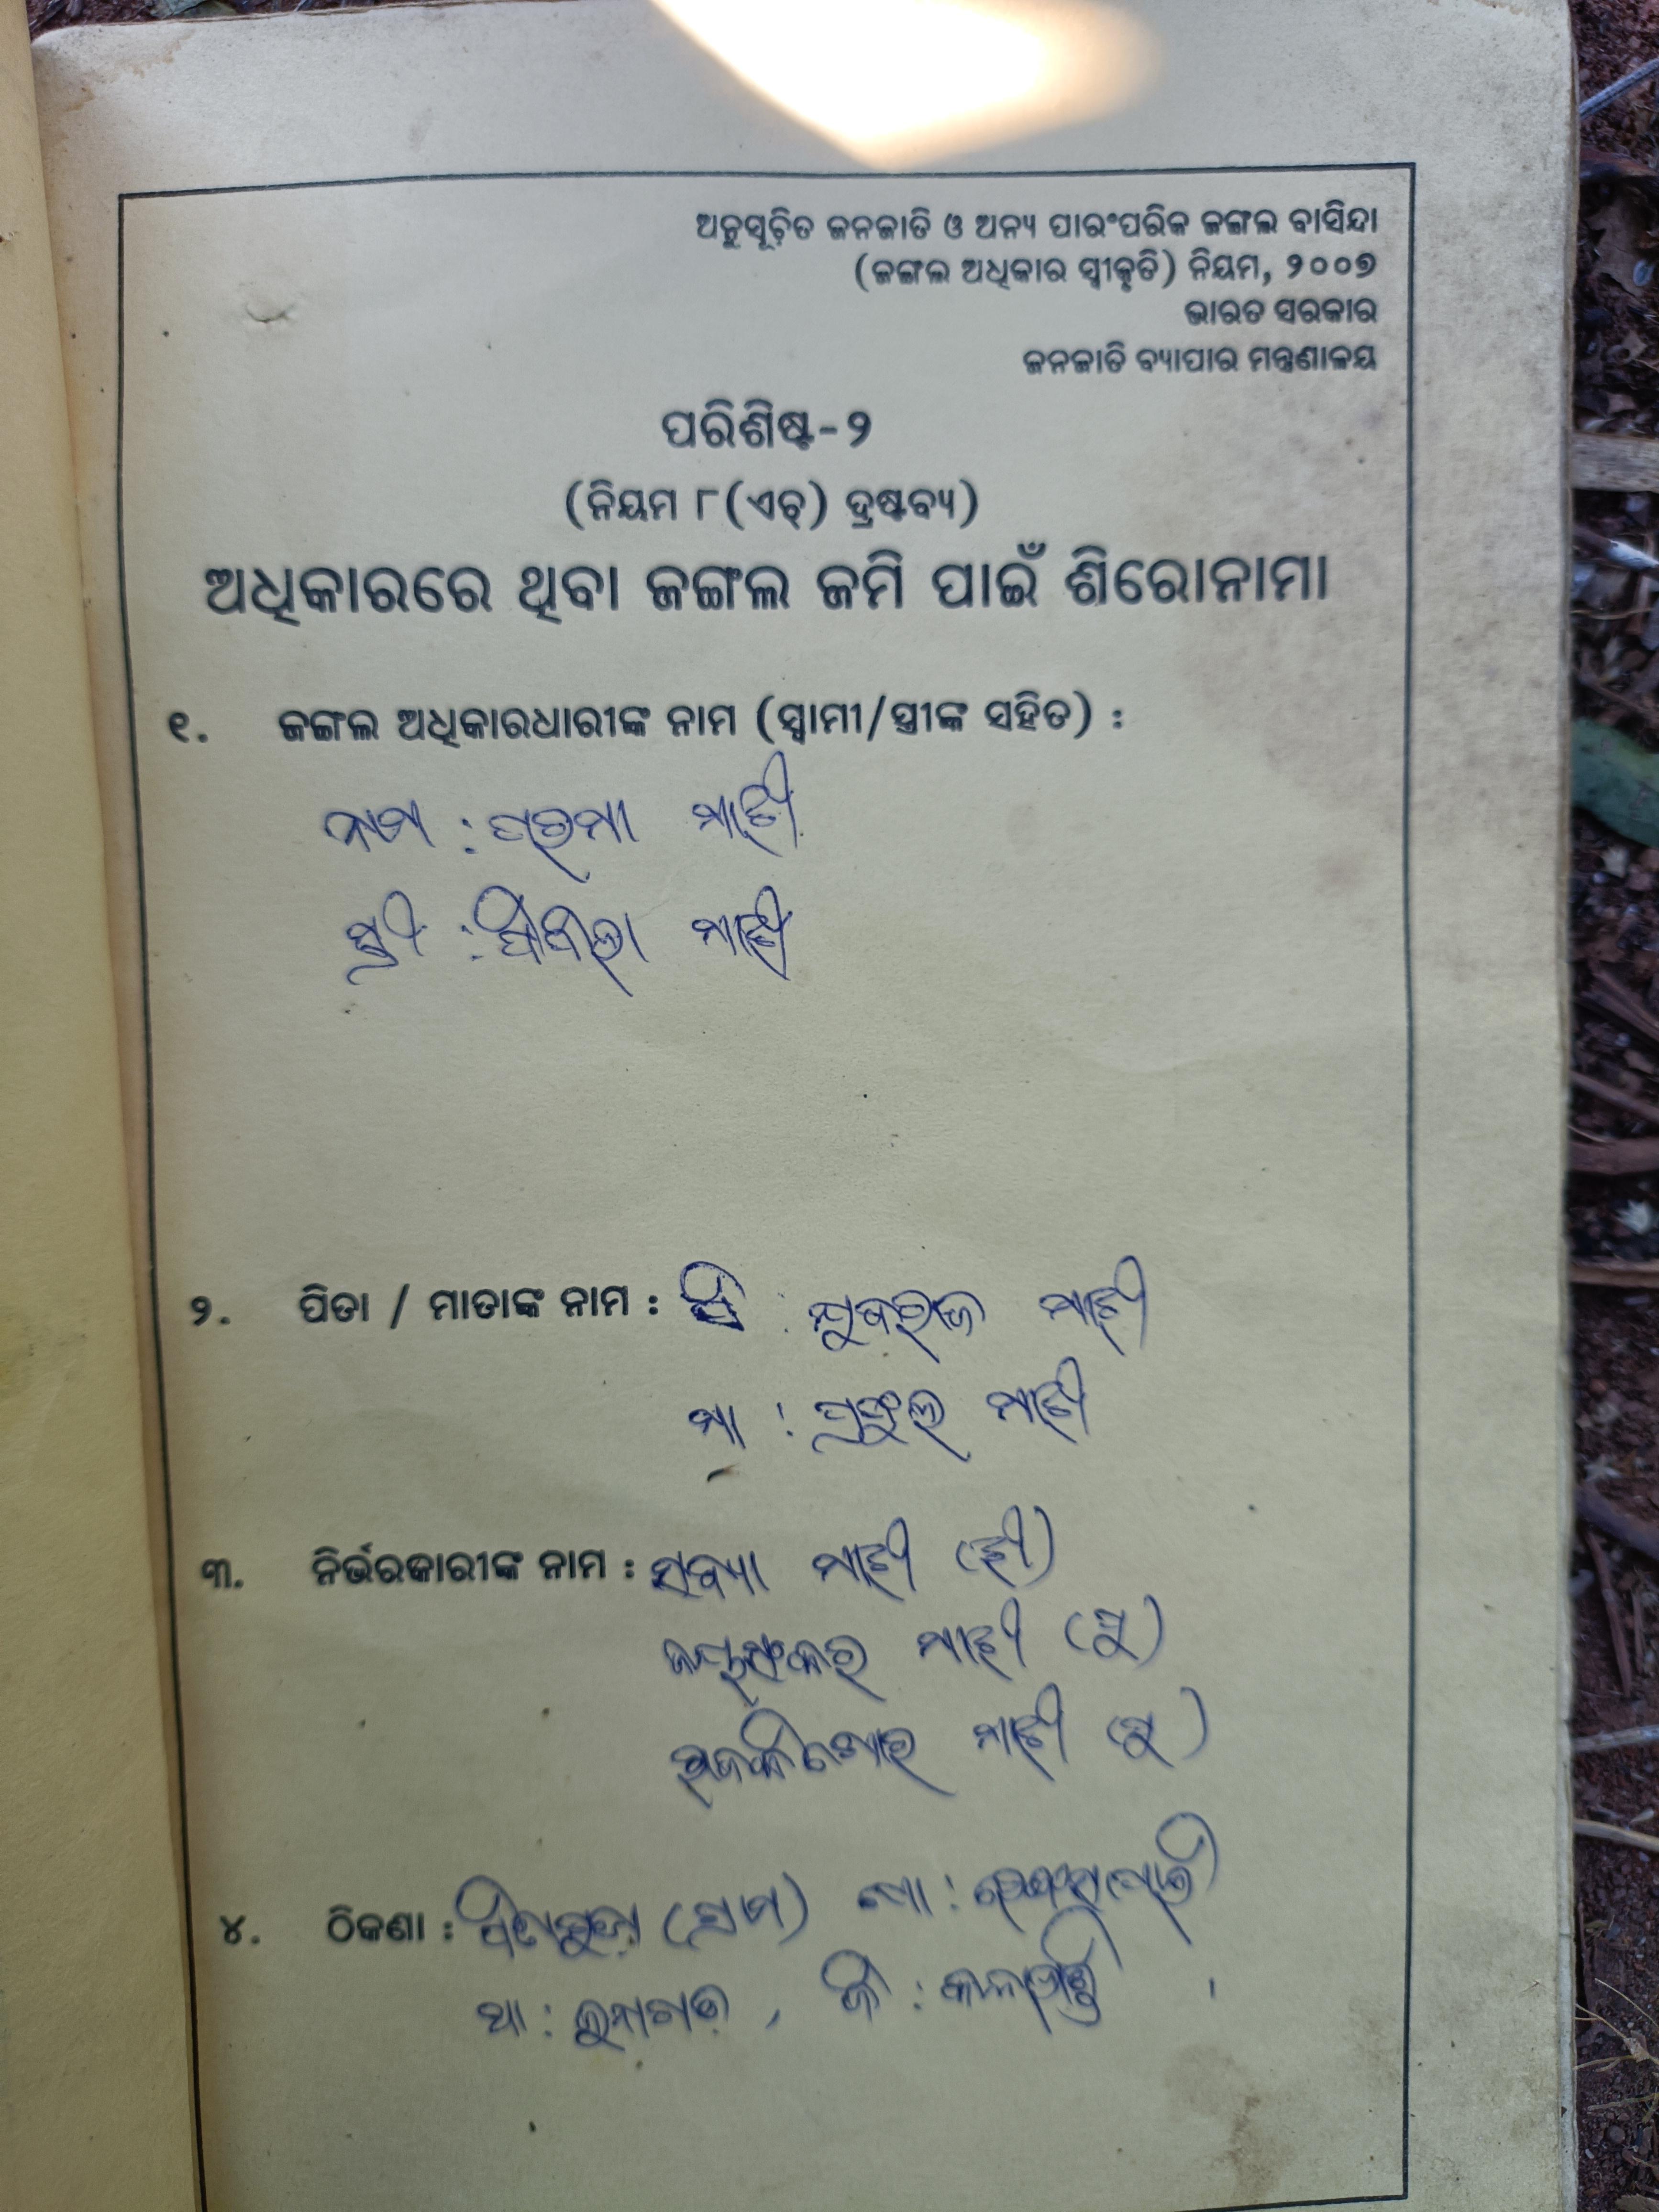 ଅନୁସୂଚିତ ଜନଜାତି ଓ ଅନ୍ୟ ପାରଂପରିକ ଜଙ୍ଗଲ ବାସିନ୍ଦା
(ଜଙ୍ଗଲ ଅଧିକାର ସ୍ୱୀକୃତି) ନିୟମ, ୨୦୦୭
ଭାରତ ସରକାର
ଜନଜାତି ବ୍ୟାପାର ମନ୍ତ୍ରଣାଳୟ
ପରିଶିଷ୍ଟ-୨
(ନିୟମ ୮(ଏଚ୍) ଦ୍ରଷ୍ଟବ୍ୟ)
ଅଧିକାରରେ ଥିବା ଜଙ୍ଗଲ ଜମି ପାଇଁ ଶିରୋନାମା
୧. ଜଙ୍ଗଲ ଅଧିକାରଧାରୀଙ୍କ ନାମ (ସ୍ୱାମୀ/ସ୍ତ୍ରୀଙ୍କ ସହିତ) :
ନାମ : ମାଝୀ
ସ୍ତ୍ରୀ : ମାଝୀ
୨. ପିତା / ମାତାଙ୍କ ନାମ : ପି : ଯୁବରାଜ ମାଝୀ
ମା : ମାଝୀ
୩. ନିର୍ଭରକାରୀଙ୍କ ନାମ : ମାଝୀ (ଝୀ)
ଜୟଶଂକର ମାଝୀ (ପୁ)
ମାଝୀ (ପୁ)
୪. ଠିକଣା : (ଗ୍ରାମ) ପୋ :
ଥା : , ଜି : କଳାହାଣ୍ଡି